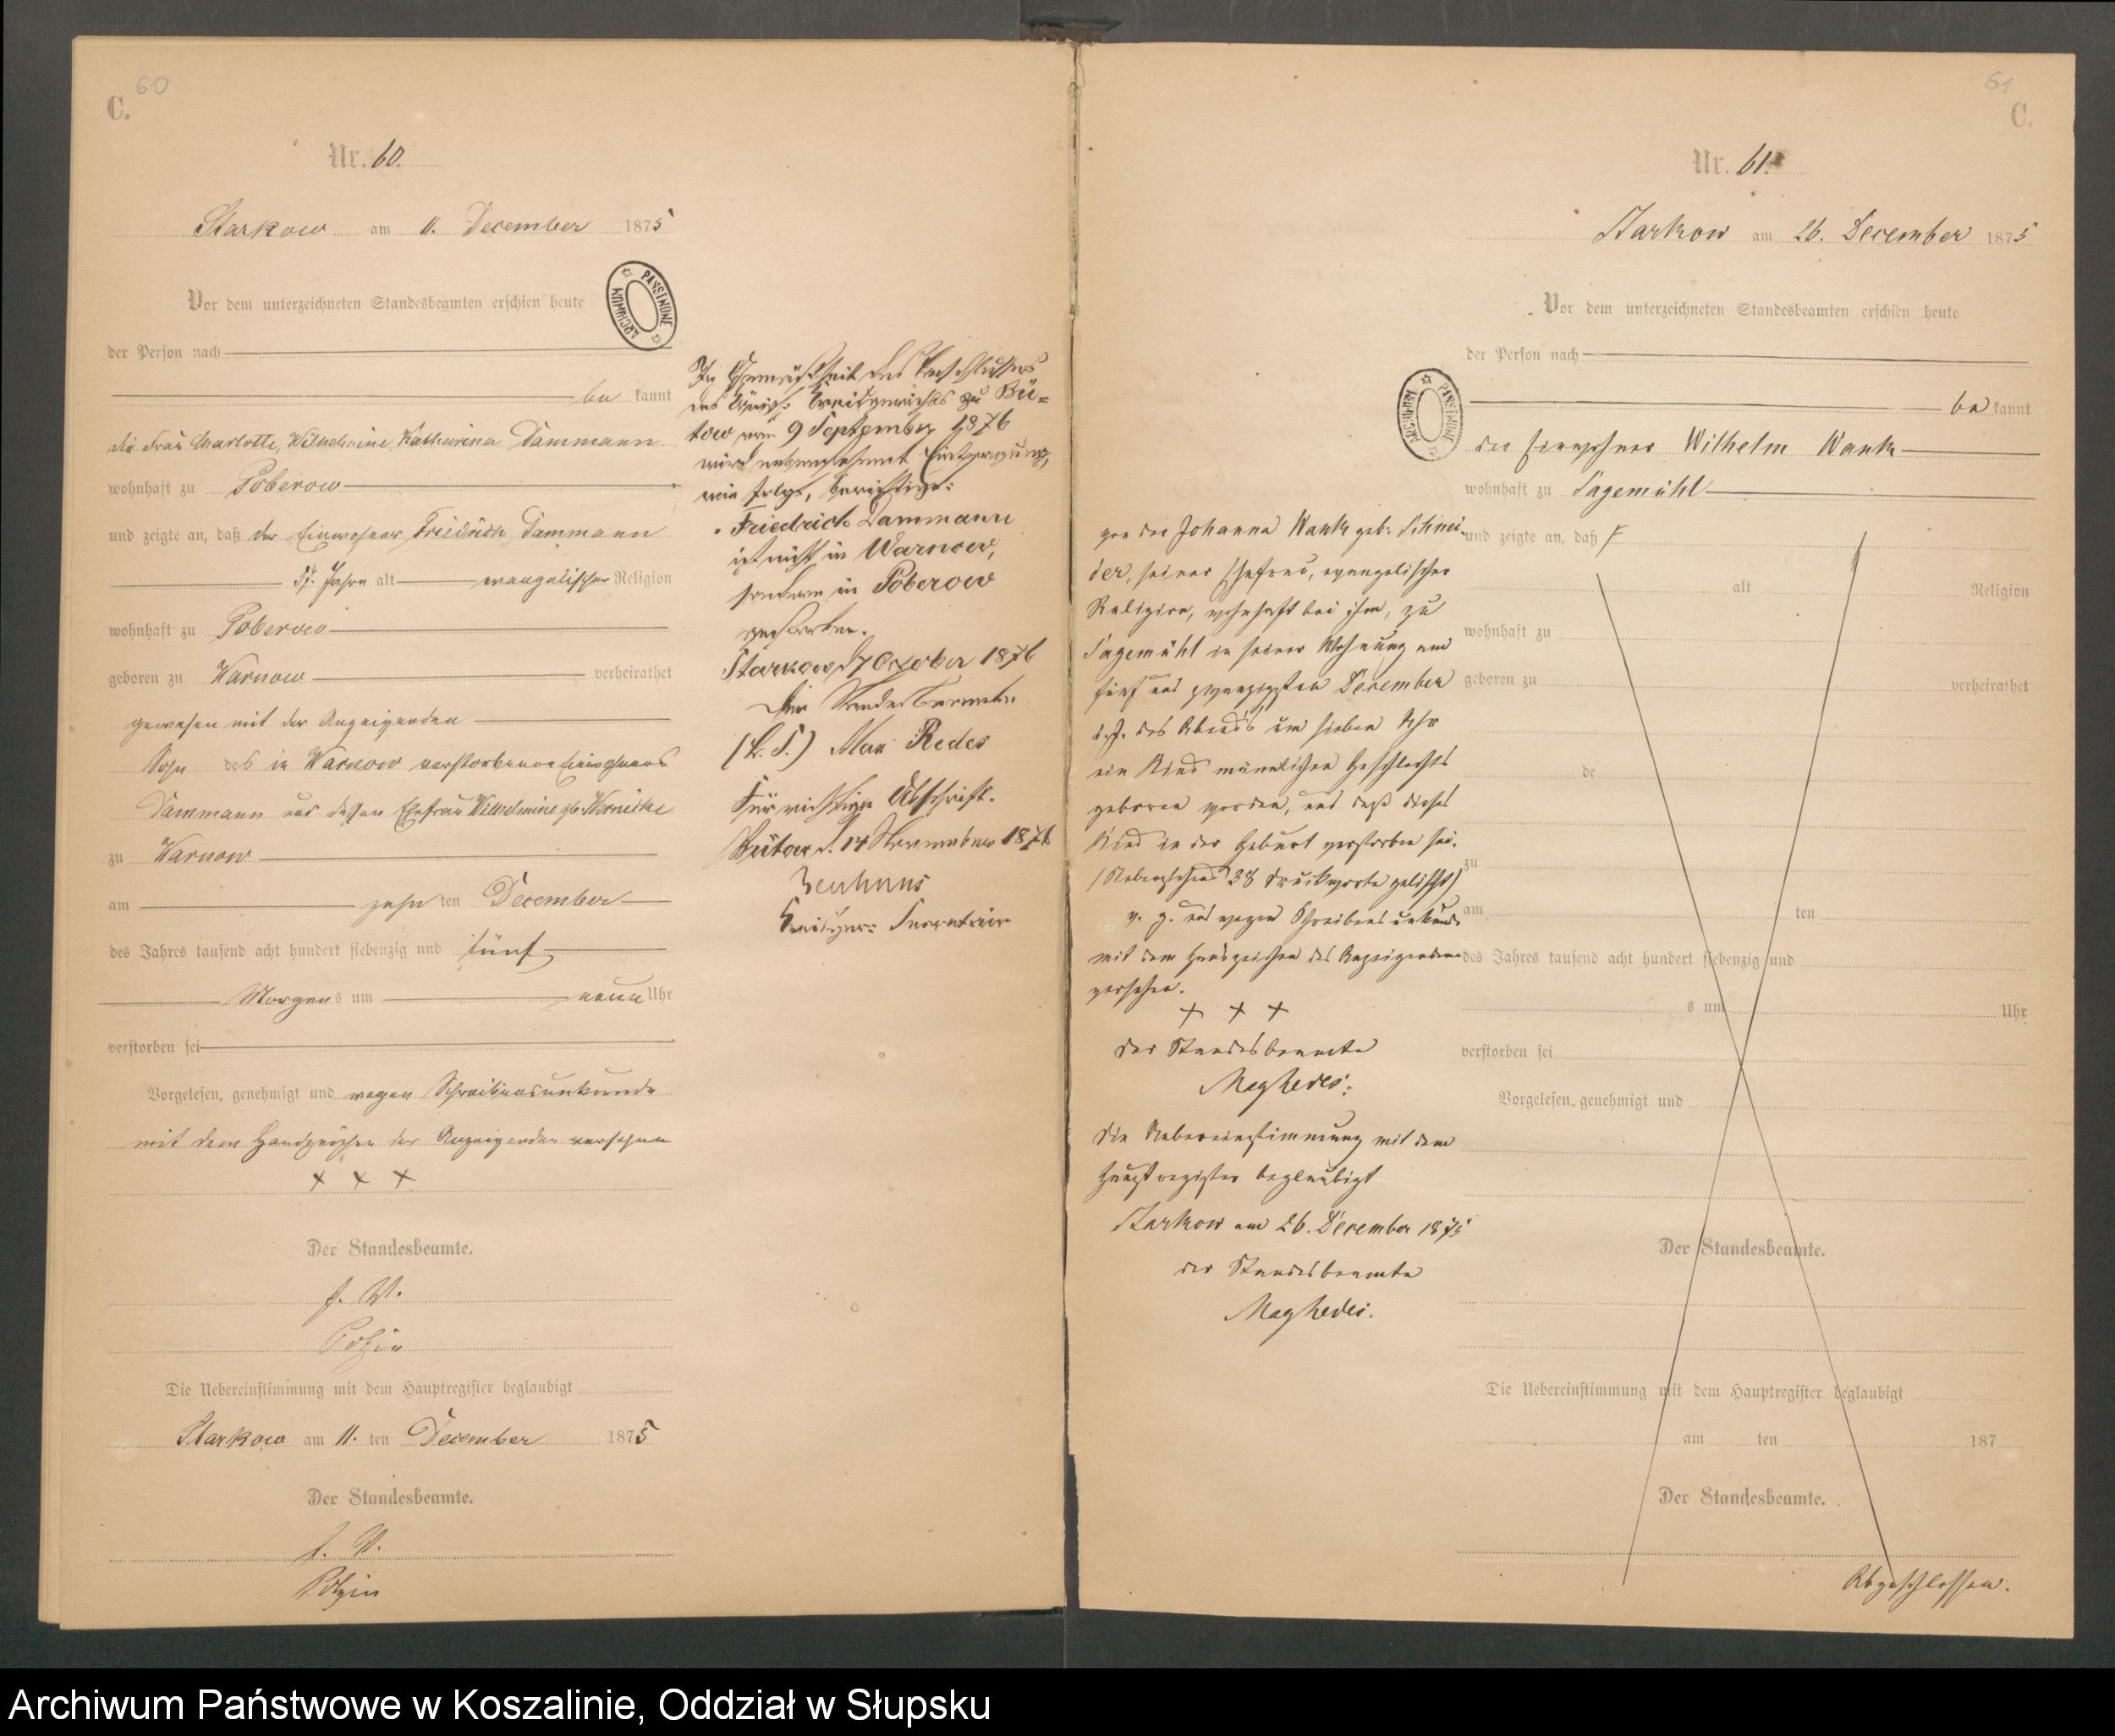 60
C.
Nr. 60.
Starkow am 11. December 1875
Vor dem unterzeichneten Standesbeamten erschien heute
der Person nach
be kannt
die Frau Charlotte, Wilhelmine, Katharina Dammann
wohnhaft zu Poberow
und zeigte an, daß der Einwohner Friedrich Dammann
57. Jahre alt evangelischer Religion
wohnhaft zu Poberow
geboren zu Warnow verheirathet
gewesen mit der Anzeigenden
Sohn des in Warnow verstorbenen Einwohners
Dammann und dessen Ehefrau Wilhelmine geb.
zu Warnow
am zehn ten December
des Jahres tausend acht hundert siebenzig und fünf
Morgens um neun Uhr
verstorben sei
Vorgelesen, genehmigt und wegen Schreibensunkunde
mit dem Handzeichen der Anzeigenden versehen
+ + +
Der Standesbeamte.
J. V.
Polzin
Die Uebereinstimmung mit dem Hauptregister beglaubigt
Starkow am 11. ten December 1875
Der Standesbeamte.
J. V.
Polzin
ARCHIWUM PAŃSTWOWE
In Gemäßheit des Beschlusses
des Königl. Kreisgerichts zu Bü=
tow vom 9 September 1876
wird nebenstehende Eintragung,
wie folgt, berichtigt:
Friedrich Dammann
ist nicht in Warnow,
sondern in Poberow
verstorben.
Starkow d 7 October 1876
Der Standesbeamte
(L. S.) Max Redes
Für richtige Abschrift.
Bütow d. 14 November 1876
Kreisger: Secretair
61
C.
Nr. 61.
Starkow am 26. December 1875
Vor dem unterzeichneten Standesbeamten erschien heute
der Person nach
be kannt
der Einwohner Wilhelm Wank
wohnhaft zu Sagemühl
und zeigte an, daß
alt Religion
wohnhaft zu
geboren zu verheirathet
de
zu
am ten
des Jahres tausend acht hundert siebenzig und
s um Uhr
verstorben sei
Vorgelesen, genehmigt und
Der Standesbeamte.
Die Uebereinstimmung mit dem Hauptregister beglaubigt
am ten 187
Der Standesbeamte.
Abgeschlossen.
ARCHIWUM PAŃSTWOWE
von der Johanna Wank geb: Schnei-
der, seiner Ehefrau, evangelischer
Religion, wohnhaft bei ihm, zu
Sagemühl in seiner Wohnung am
fünf und zwanzigsten December
d. J. des Abends um sieben Uhr
ein Kind männlichen Geschlechts
geboren worden, und daß dieses
Kind in der Geburt verstorben sei.
(Nebenstehend 38 Druckworte gelöscht)
v. g. und wegen Schreibensunkunde
mit dem Handzeichen des Anzeigenden
versehen.
+ + +
Der Standesbeamte
Die Uebereinstimmung mit dem
Hauptregister beglaubigt
Starkow am 26. December 1875
der Standesbeamte
Archiwum Państwowe w Koszalinie, Oddział w Słupsku